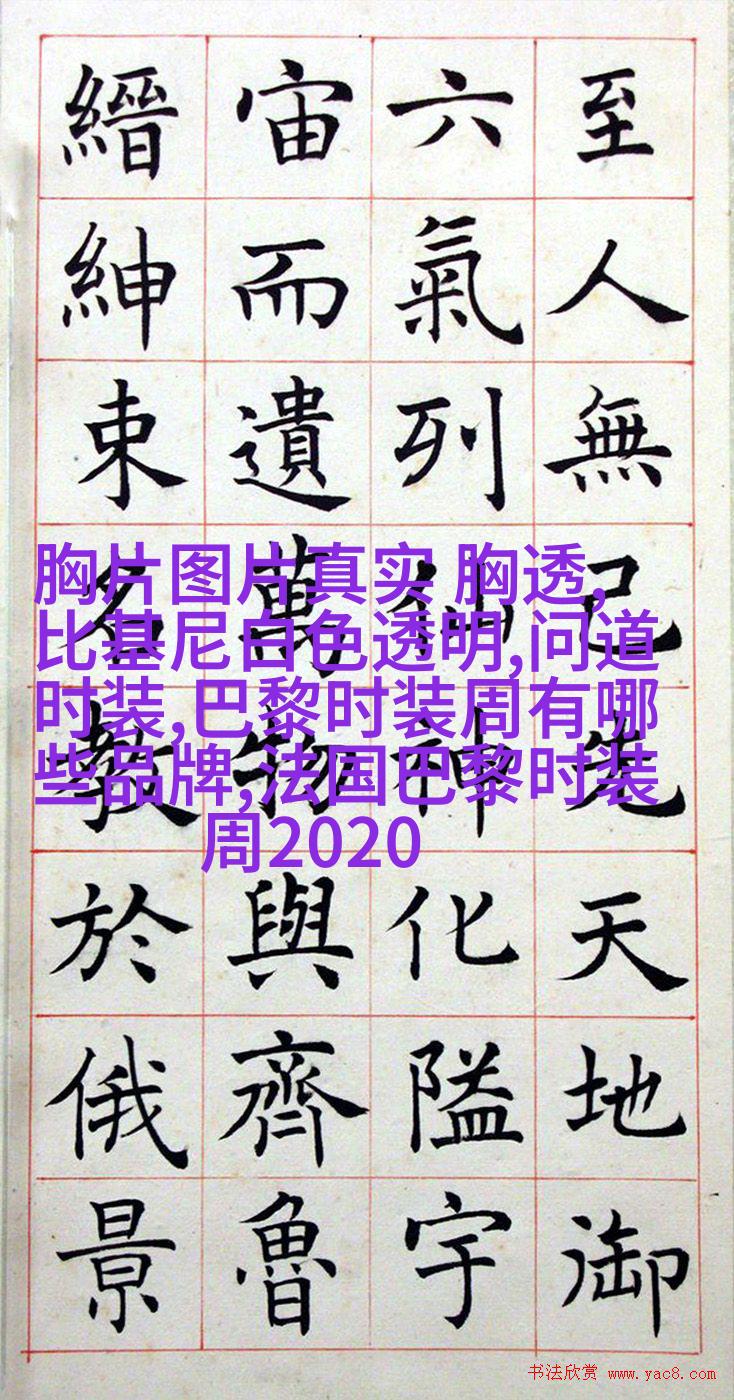 至人無己先天地御
六氣列神化隘宇
宙而遺萬物與齊魯
縉紳束名教於俄景
胸片图片真实 胸透,
比基尼白色透明,问道
时装,巴黎时装周有哪
些品牌,法国巴黎时装
周2020
书法欣赏 www.yac8.com